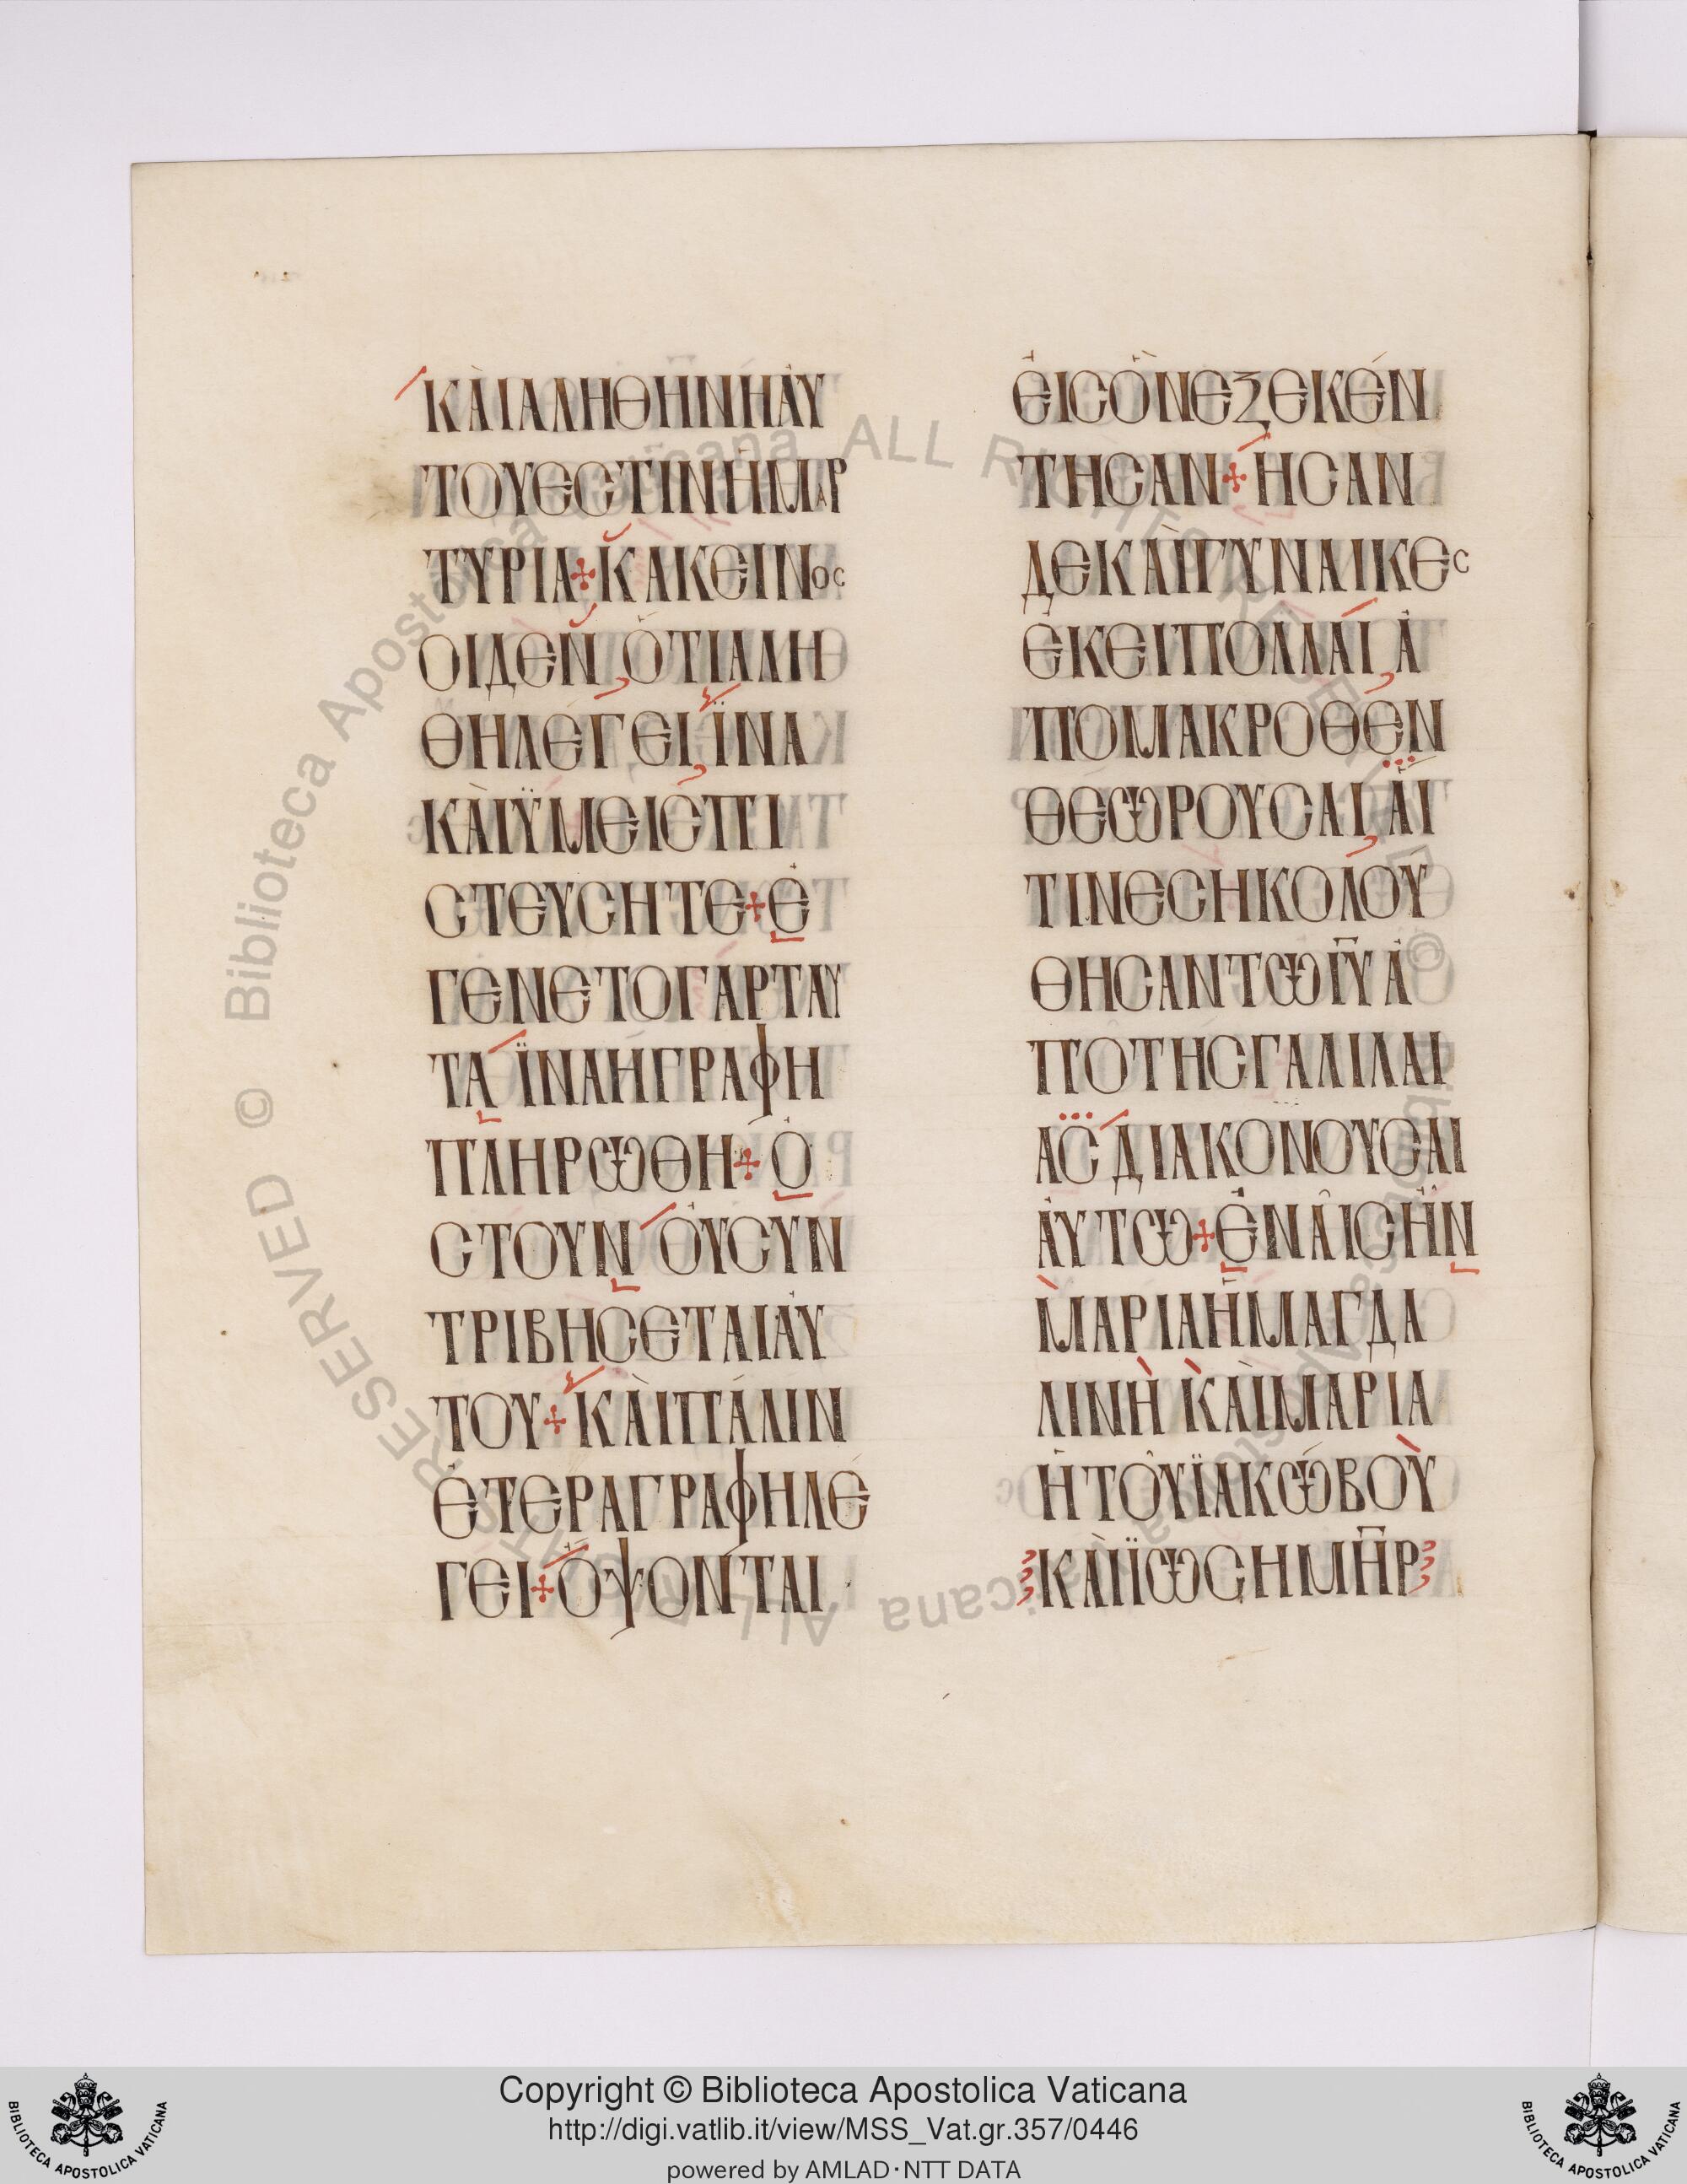 ΚΑὶΑΛΗΘΗΝΗΑΥ
ΤΟΥΕϹΤΙΝΗΜΑΡ
ΤΥΡΙΑ⁘ΚΑΚΕΙΝΟϹ
ΟΙΔΕΝ,ΟΤΙΑΛΗ
ΘΗΛΕΓΕΙ,ΪΝΑ
ΚΑὶΫΜΕΙϹΠΙ
ϹΤΕΥϹΗΤΕ⁘Ε
ΓΕΝΕΤΟΓΑΡΤΑΥ
ΤΑΪΝΑΗΓΡΑΦΗ
ΠΛΗΡѠΘΗ⁘Ο
ϹΤΟΥΝΟΥϹΥΝ
ΤΡΙΒΗϹΕΤΑΙΑΥ
ΤΟΥ⁘ΚΑὶΠΑΛΙΝ
ΕΤΕΡΑΓΡΑΦΗΛΕ
ΓΕΙ⁘ΟΨΟΝΤΑΙ
ΕΙϹΟΝΕΞΕΚΕΝ
ΤΗϹΑΝ⁘ΗϹΑΝ
ΔΕΚΑὶΓΥΝΑΙΚΕϹ
ΕΚΕΙΠΟΛΛΑΙ,Α
ΠΟΜΑΚΡΟΘΕΝ
ΘΕѠΡΟΥϹΑΙ,ΑΙ
ΤΙΝΕϹΗΚΟΛΟΥ
ΘΗϹΑΝΤѠΙ̅Υ̅Α
ΠΟΤΗϹΓΑΛΙΛΑΙ
ΑϹΔΙΑΚΟΝΟΥϹΑΙ
ΑΥΤѠ⁘ΕΝΑΙϹΗΝ
ΜΑΡΙΑΗΜΑΓΔΑ
ΛΙΝΗΚΑὶΜΑΡΙΑ
ΗΤΟΥΪΑΚѠΒΟΥ
ΚΑὶΪѠϹΗΜΗ̅Ρ
Copyright © Biblioteca Apostolica Vaticana
http://digi.vatlib.it/view/MSS_Vat.gr.357/0446
powered by AMLAD·NTT DATA
BIBLIOTECA APOSTOLICA VATICANA
BIBLIOTECA APOSTOLICA VATICANA
© Biblioteca Apostolica Vaticana ALL RIGHTS RESERVED © Biblioteca Apostolica Vaticana ALL RIGHTS RESERVED